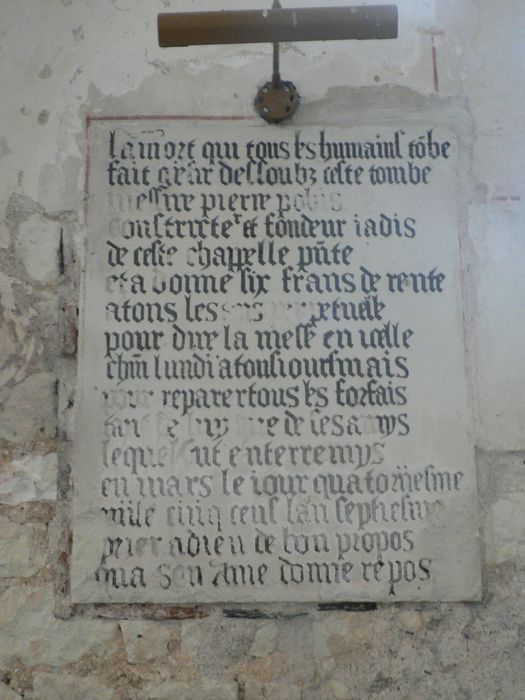 la mort qui tous les humains tōbe
fait gesir dessoubz ceste tombe
messire pierre
constructeʳ et fondeur iadis
de ceste chappelle pn̄te
et a donne six frans de rente
a tous les ans perpetuelle
pour dire la messe en icelle
chm̄ lundi a tousiours mais
pour reparer tous les forfais
fait de luy que de ses amys
lequel fut enterre mys
en mars le iour quatorziesme
mile cinq cens lan septiesme
prier a dieu de bon propos
qua son ame donne repos